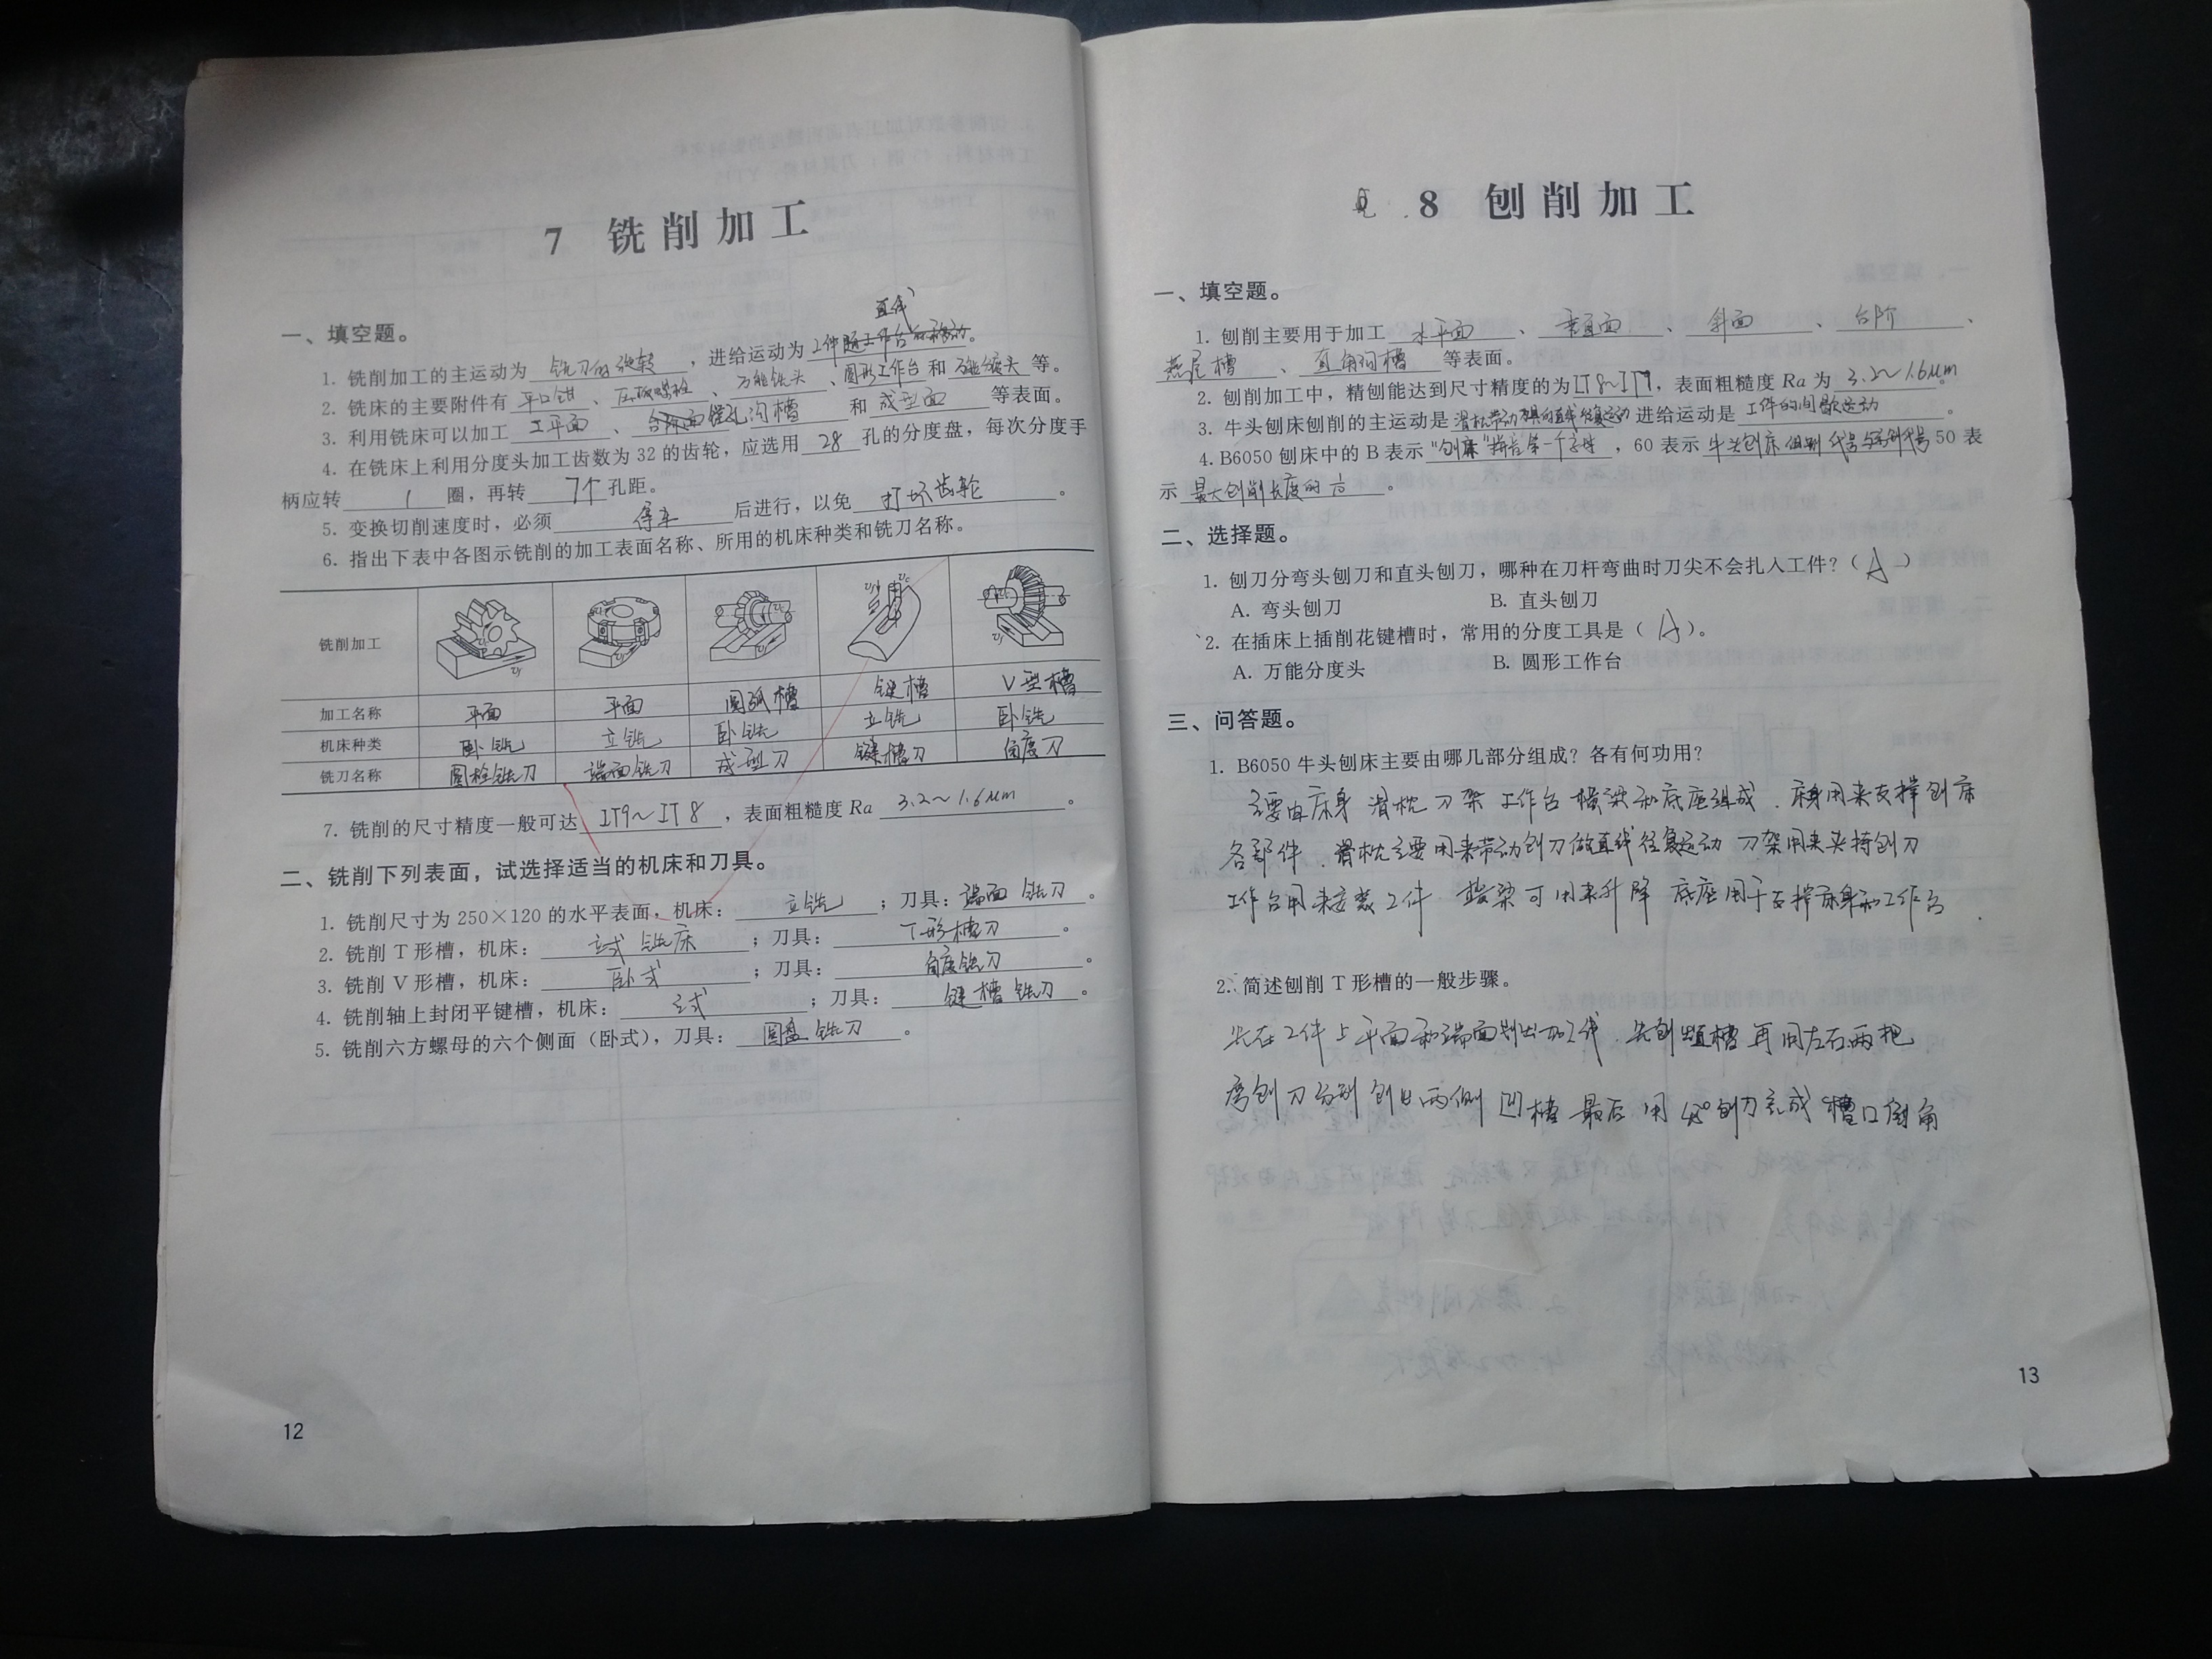 7 铣削加工
一、填空题。
直线
1. 铣削加工的主运动为 铣刀的旋转 ,进给运动为 工件随工作台的移动。
2. 铣床的主要附件有 平口钳 、 压板螺栓 、 万能铣头 、圆形工作台 和 万能分度头 等。
3. 利用铣床可以加工 工平面 、 镗孔沟槽 和 成型面 等表面。
4. 在铣床上利用分度头加工齿数为 32 的齿轮,应选用 28 孔的分度盘,每次分度手
柄应转 1 圈,再转 7个 孔距。
5. 变换切削速度时,必须 停车 后进行,以免 打坏齿轮 。
6. 指出下表中各图示铣削的加工表面名称、所用的机床种类和铣刀名称。
铣削加工
加工名称 平面 平面 圆弧槽 键槽 V型槽
机床种类 卧铣 立铣 卧铣 立铣 卧铣
铣刀名称 圆柱铣刀 端面铣刀 成型刀 键槽刀 角度刀
7. 铣削的尺寸精度一般可达 IT9~IT8 ,表面粗糙度 Ra 3.2~1.6μm 。
二、铣削下列表面,试选择适当的机床和刀具。
1. 铣削尺寸为 250×120 的水平表面,机床: 立铣 ;刀具:端面铣刀 。
2. 铣削 T 形槽,机床: 立式铣床 ;刀具: T形槽刀 。
3. 铣削 V 形槽,机床: 卧式 ;刀具: 角度铣刀 。
4. 铣削轴上封闭平键槽,机床: 立式 ;刀具: 键槽铣刀 。
5. 铣削六方螺母的六个侧面(卧式),刀具: 圆盘铣刀 。
12
8 刨削加工
一、填空题。
1. 刨削主要用于加工 水平面 、 垂直面 、 斜面 、 台阶 、
燕尾槽 、 直角沟槽 等表面。
2. 刨削加工中,精刨能达到尺寸精度的为IT8~IT9,表面粗糙度 Ra 为 3.2~1.6μm。
3. 牛头刨床刨削的主运动是滑枕带动刨刀的直线往复运动 进给运动是 工件的间歇运动 。
4. B6050 刨床中的 B 表示 "刨床"拼音第一个字母 ,60 表示 牛头刨床组别代号与系列代号 50 表
示 最大刨削长度的 。
二、选择题。
1. 刨刀分弯头刨刀和直头刨刀,哪种在刀杆弯曲时刀尖不会扎入工件?( A )
A. 弯头刨刀 B. 直头刨刀
2. 在插床上插削花键槽时,常用的分度工具是( A )。
A. 万能分度头 B. 圆形工作台
三、问答题。
1. B6050 牛头刨床主要由哪几部分组成?各有何功用?
主要由床身 滑枕 刀架 工作台 横梁和底座组成 . 床身用来支撑刨床
各部件 . 滑枕主要用来带动刨刀做直线往复运动 刀架用来夹持刨刀
工作台用来安装工件 横梁可用来升降 底座用于支撑床身和工作台 .
2. 简述刨削 T 形槽的一般步骤。
先在工件上平面和端面划出加工线 . 先刨直槽 再用左右两把
弯刨刀分别刨出两侧凹槽 最后用45°刨刀完成槽口倒角
13